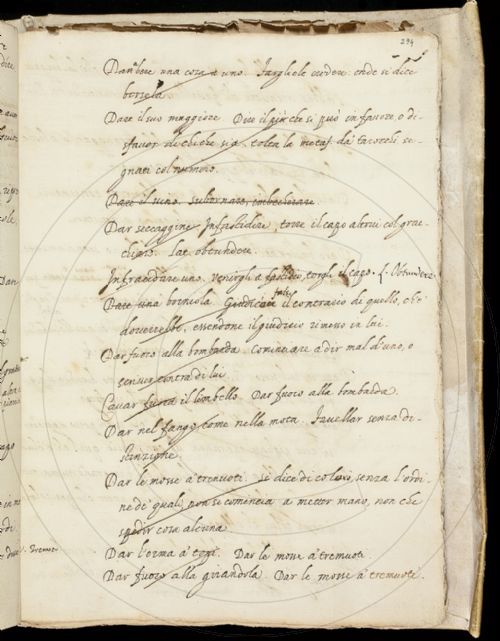 294
Dar bere una cosa a uno. Fargliele credere onde si dice
bersela
Dare il suo maggiore Dire il più che si può in favore, o di-
sfavor di chi che sia tolta la metaf. da tarocchi se-
gnati col numero.
Dare il suno. subornare, imbecherare
Dar seccaggine Infastidire, torre il capo altrui col grac-
chiare. Lat. obtundere.
Infracidare uno. Venirgli a fastidio, torgli il capo. L. Obtundere
Dare una bornola Giudicare il contrario di quello, che
dovrebbe, essendone il giudizio rimesso in lui.
Dar fuoco alla bombarda Cominciare a dir mal d'uno, o
scriver contra di lui
Cavar fuora il limbello. Dar fuoco alla bombarda.
Dar nel fango come nella mota. Favellar senza di-
stinzione
Dar le mosse a tremuoti. si dice di coloro, senza l'ordi-
ne de quali non si comincia a metter mano, non che
spedir cosa alcuna
Dar l'orma a topi. Dar le mosse a tremuoti.
Dar fuoco alla girandola Dar le mosse a tremuoti.